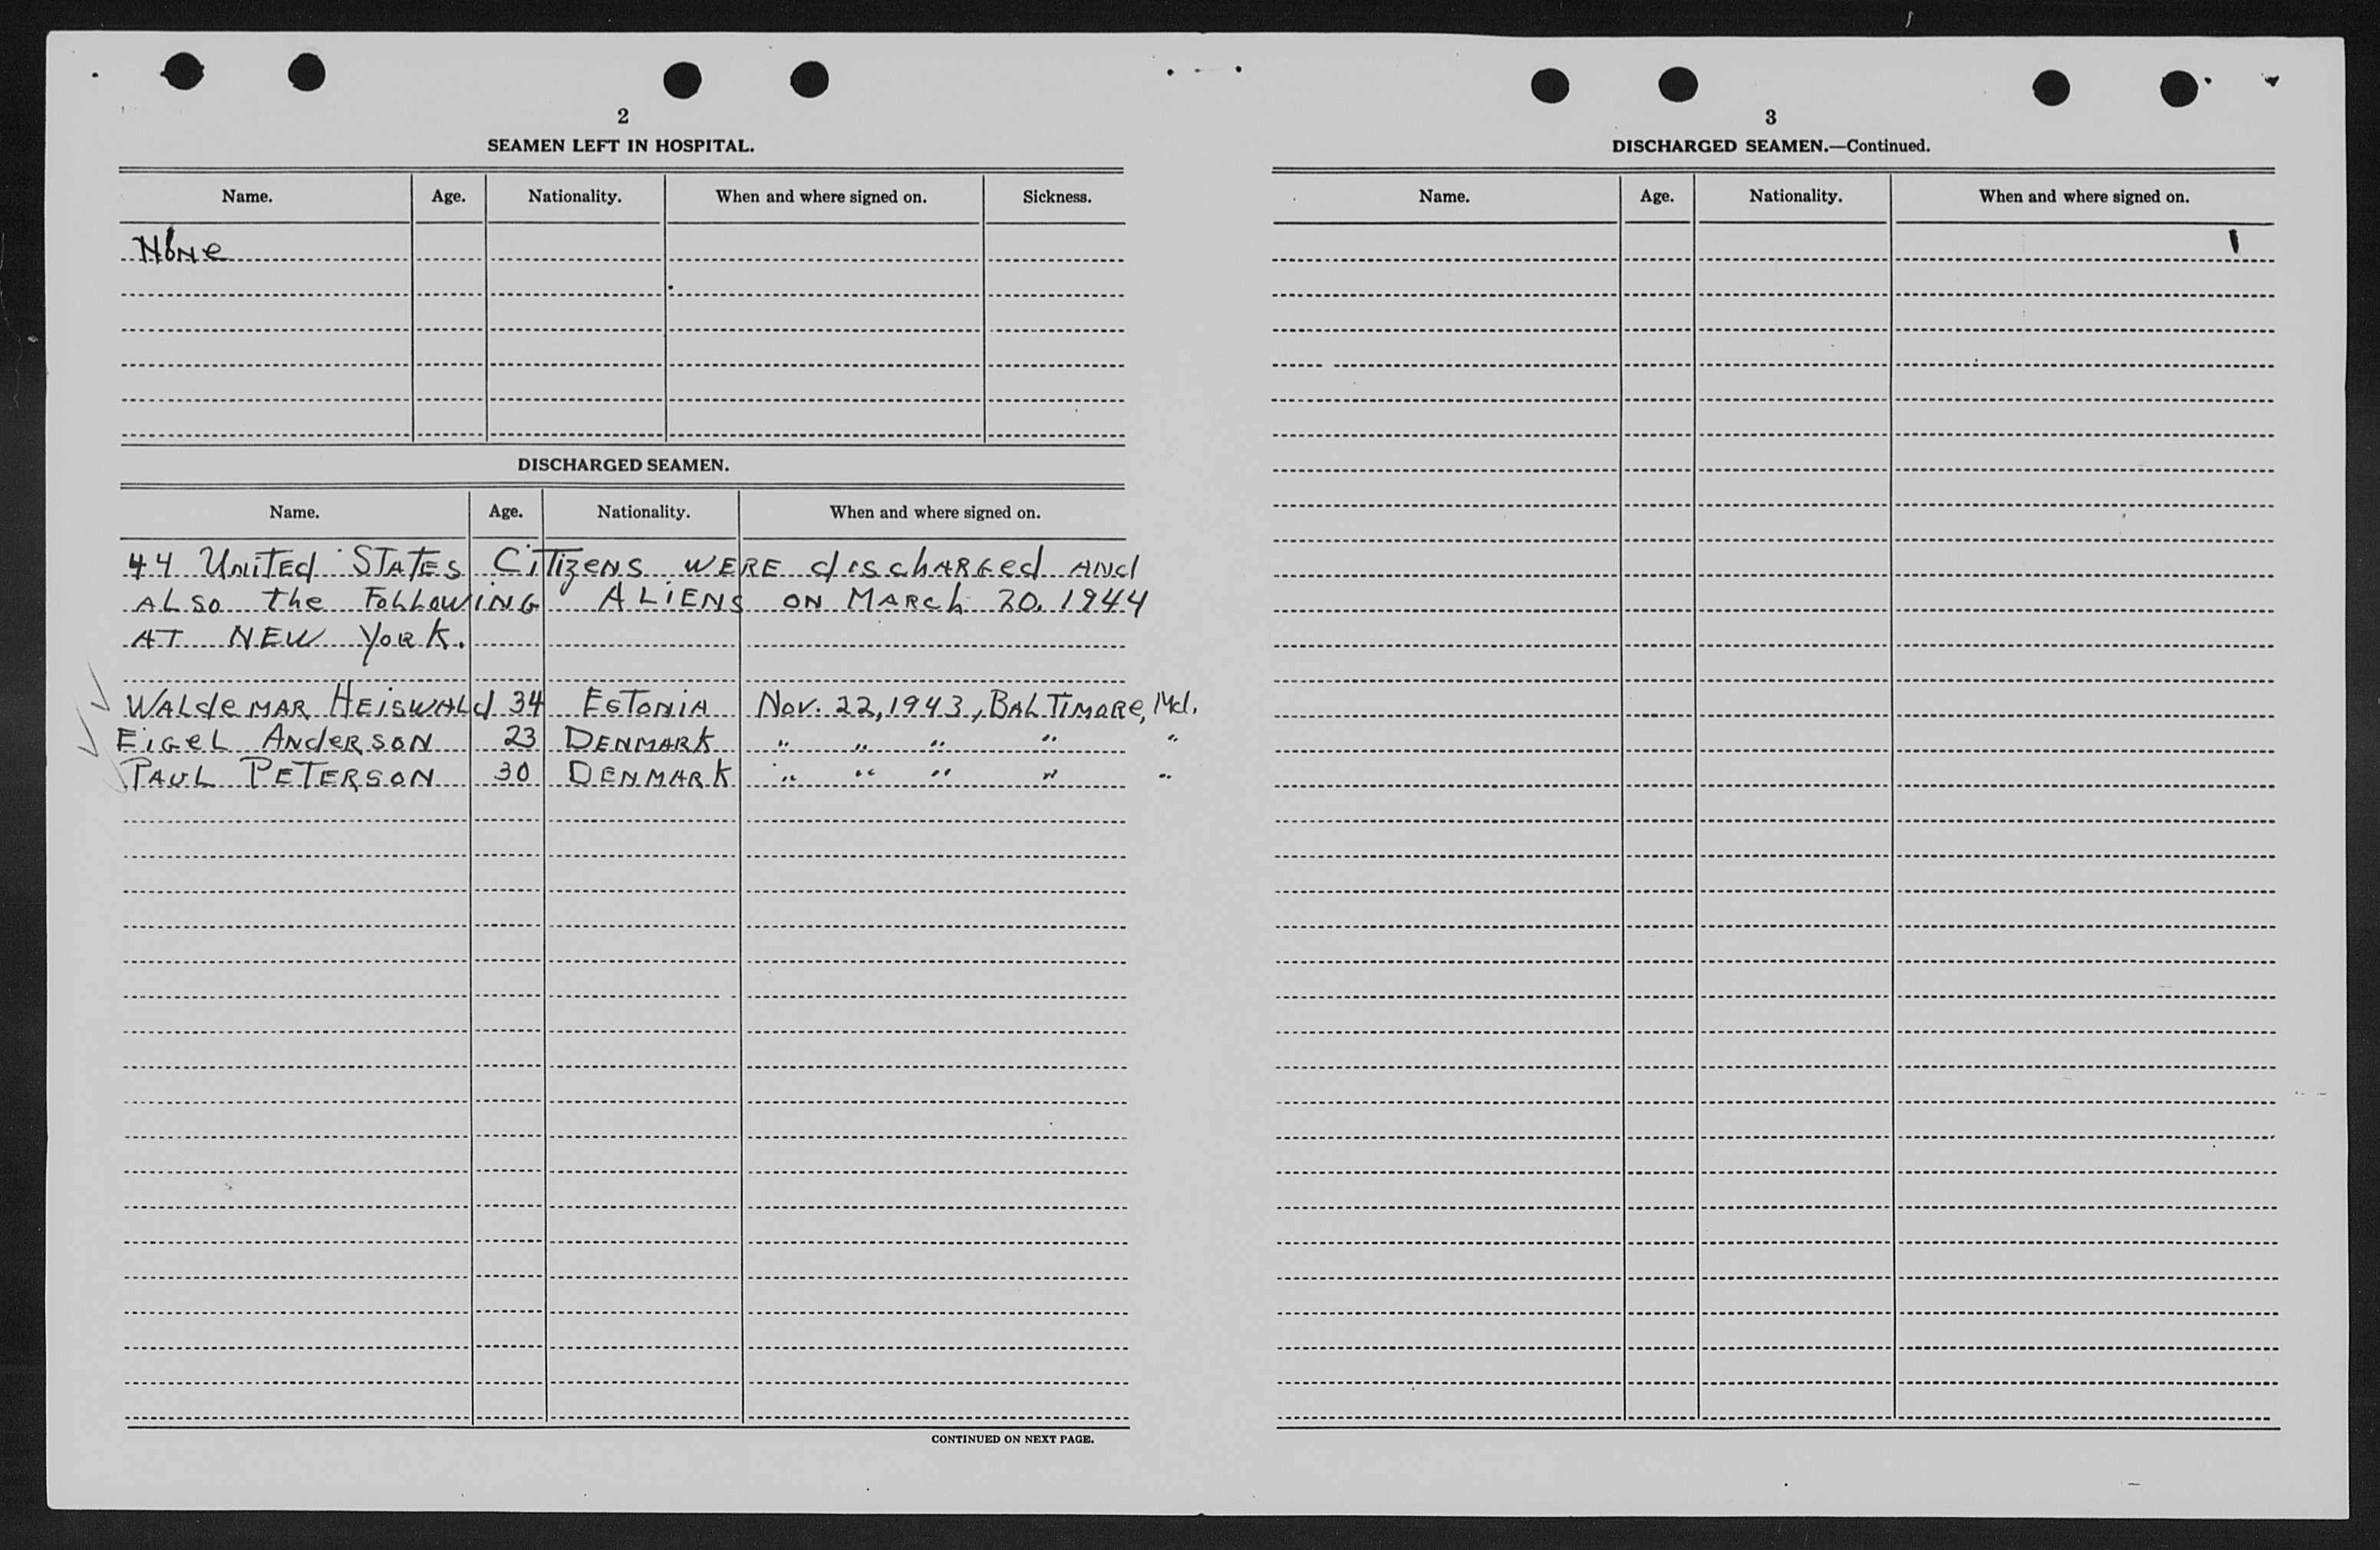 2
SEAMEN LEFT IN HOSPITAL.
Name. Age. Nationality. When and where signed on. Sickness.
None
DISCHARGED SEAMEN.
Name. Age. Nationality. When and where signed on.
44 United States Citizens were discharged and
also the following Aliens on March 20, 1944
at New York.
Waldemar Heiswald 34 Estonia Nov. 22, 1943, Baltimore, Md.
Eigel Anderson 23 Denmark " " " " "
Paul Peterson 30 Denmark " " " " "
CONTINUED ON NEXT PAGE.
3
DISCHARGED SEAMEN.—Continued.
Name. Age. Nationality. When and where signed on.